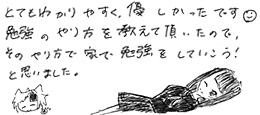 とてもわかりやすく、優しかったです
勉強のやり方を教えて頂いたので、
そのやり方で家で勉強をしていこう!
と思いました。